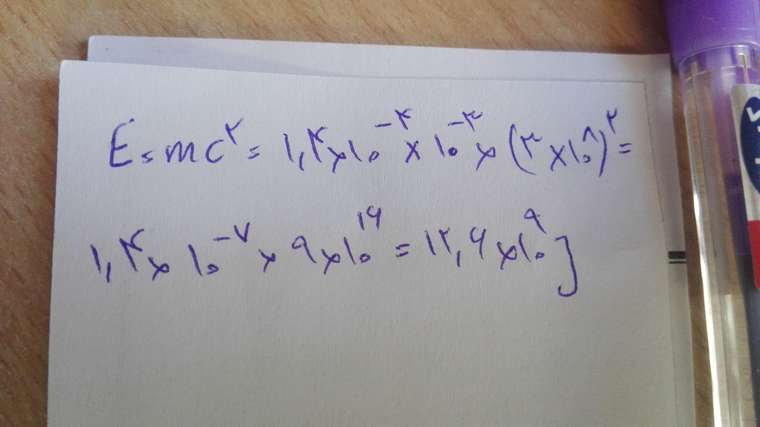 E = mc² = ۱,۴ × ۱۰⁻⁴ × ۱۰⁻³ × (۳ × ۱۰^۸)^۲ =
۱,۴ × ۱۰^-۷ × ۹ × ۱۰^۱۶ = ۱۲,۶ × ۱۰^۹ J